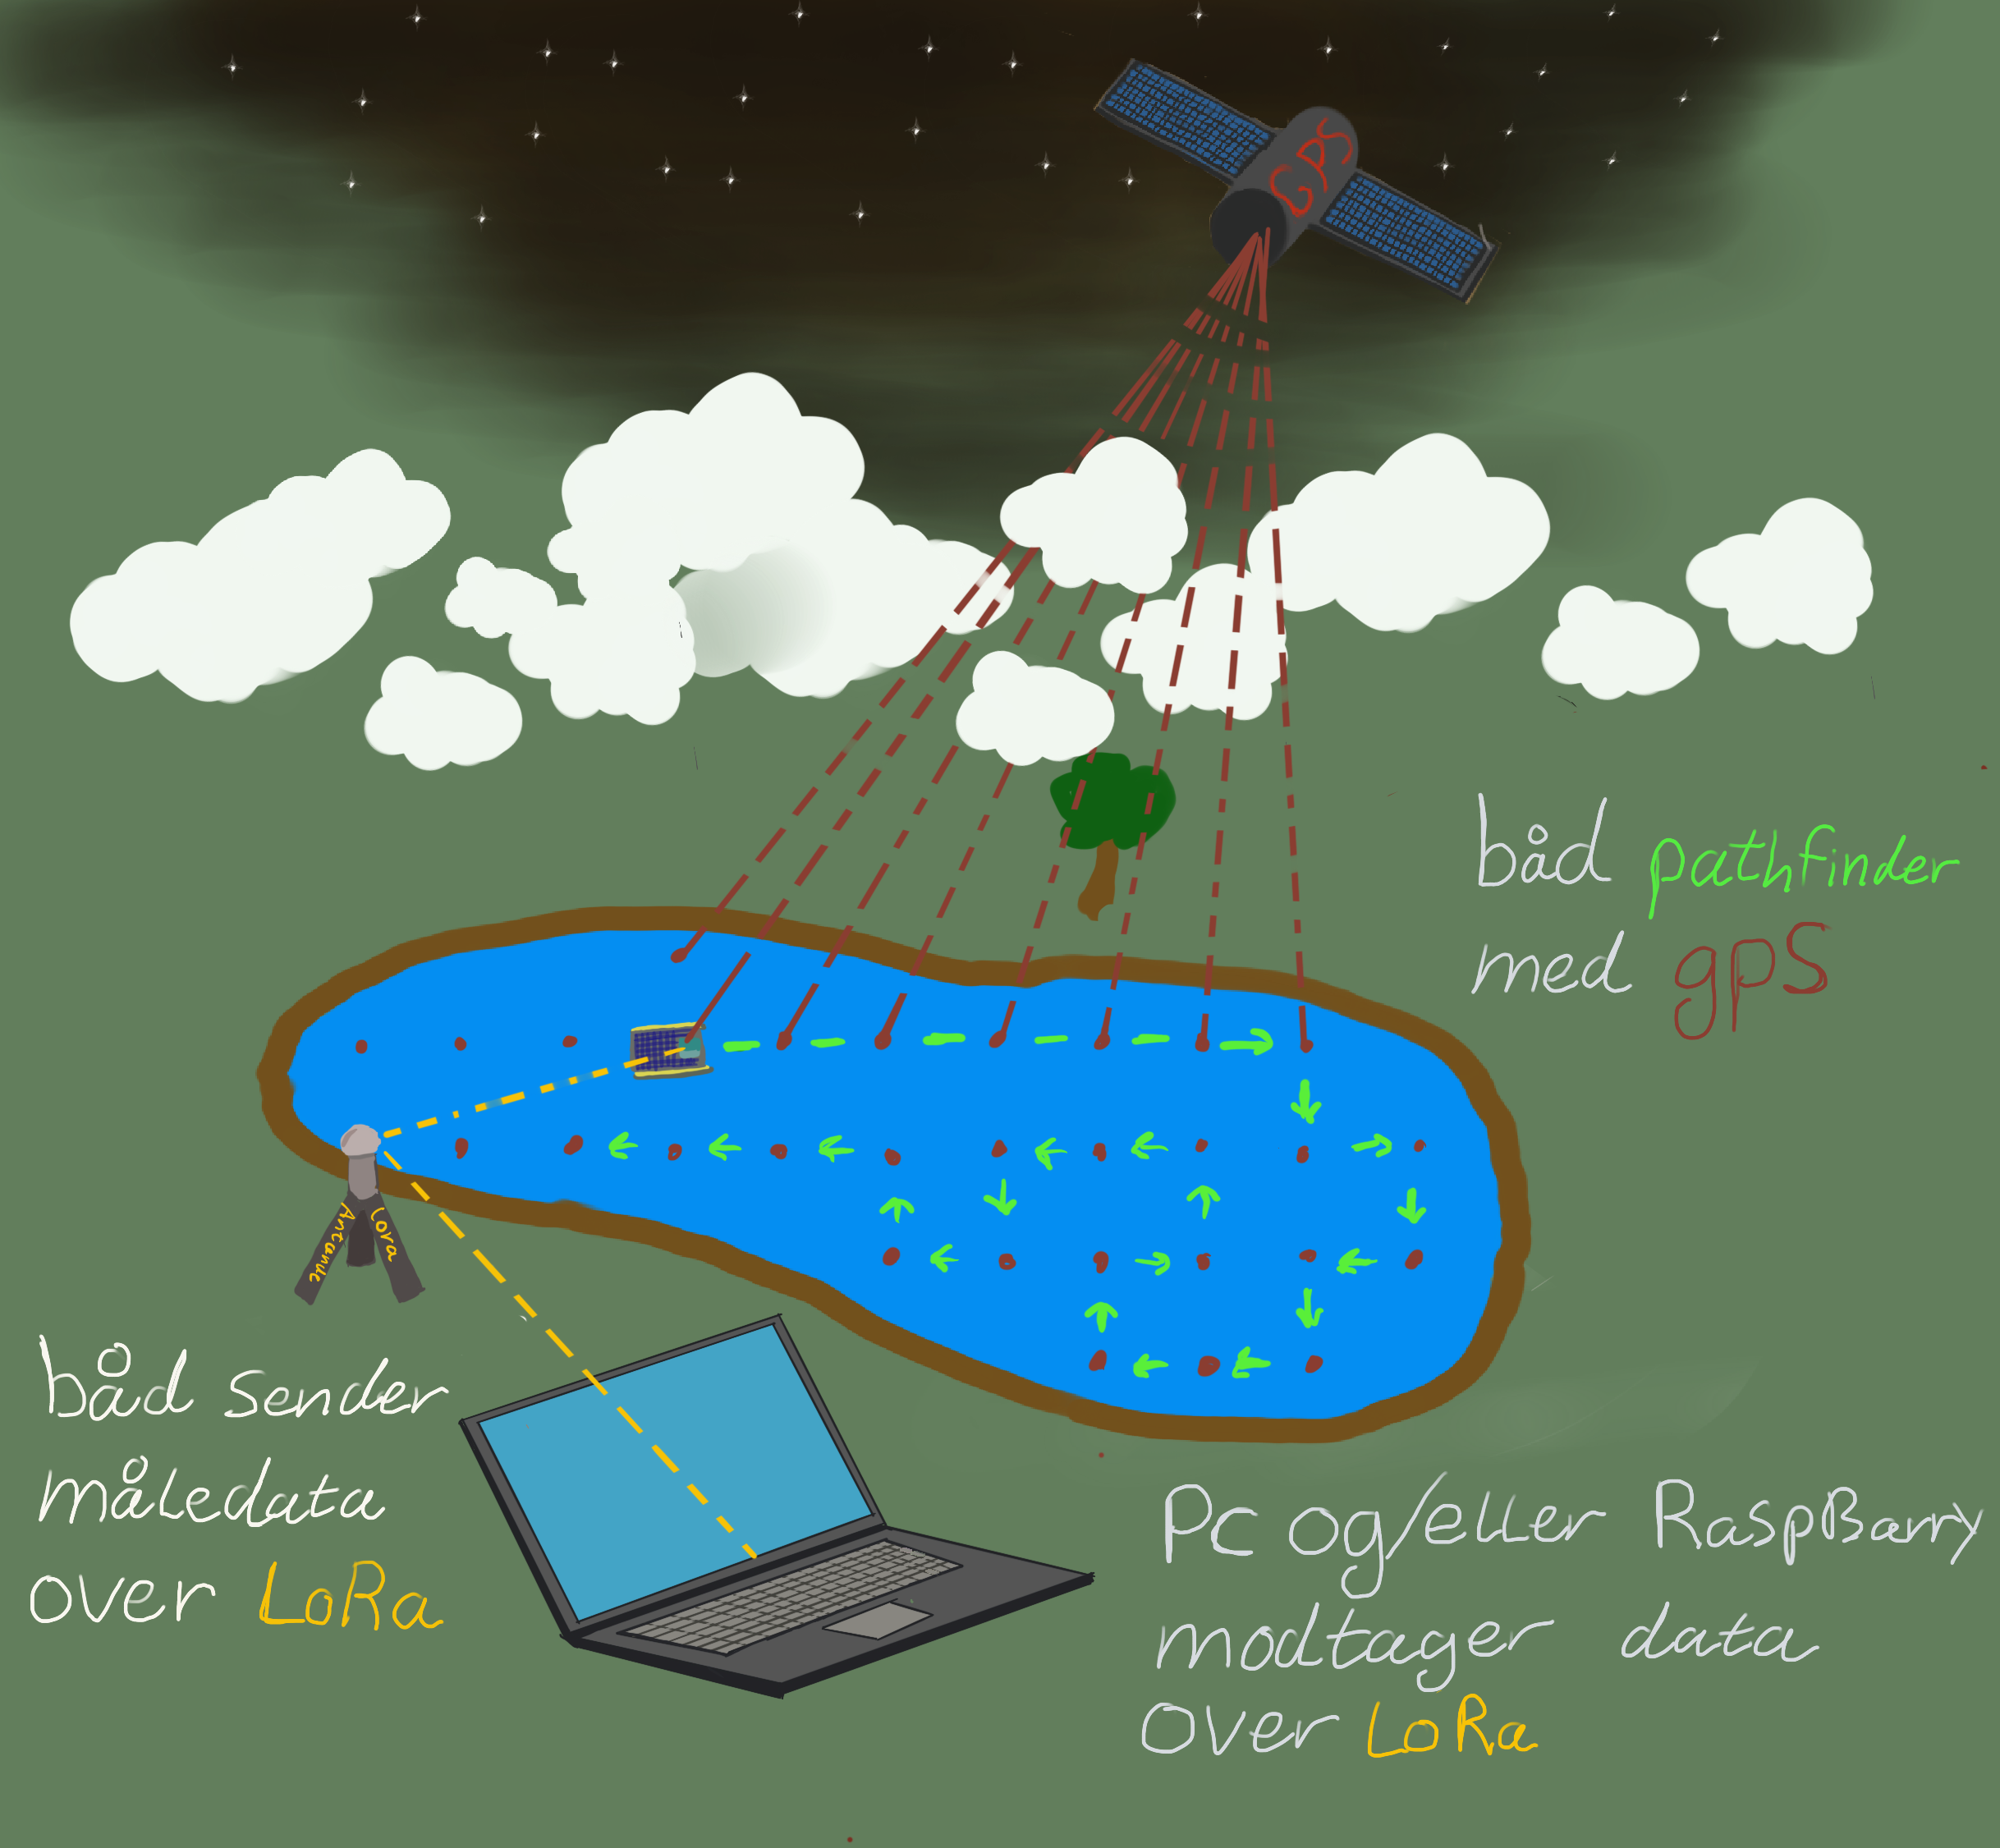 GPS
båd pathfinder
med gps
Lora
Antanne
båd sender
måledata
over LoRa
PC og/eller RaspBarry
modtager data
over LoRa